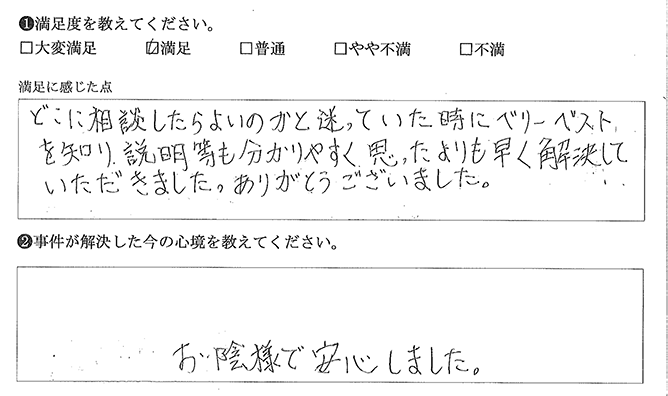 ❶満足度を教えてください。
□大変満足 ☑満足 □普通 □やや不満 □不満
満足に感じた点
どこに相談したらよいのかと迷っていた時にベリーベスト
を知り、説明等も分かりやすく思ったよりも早く解決して
いただきました。ありがとうございました。
❷事件が解決した今の心境を教えてください。
お陰様で安心しました。